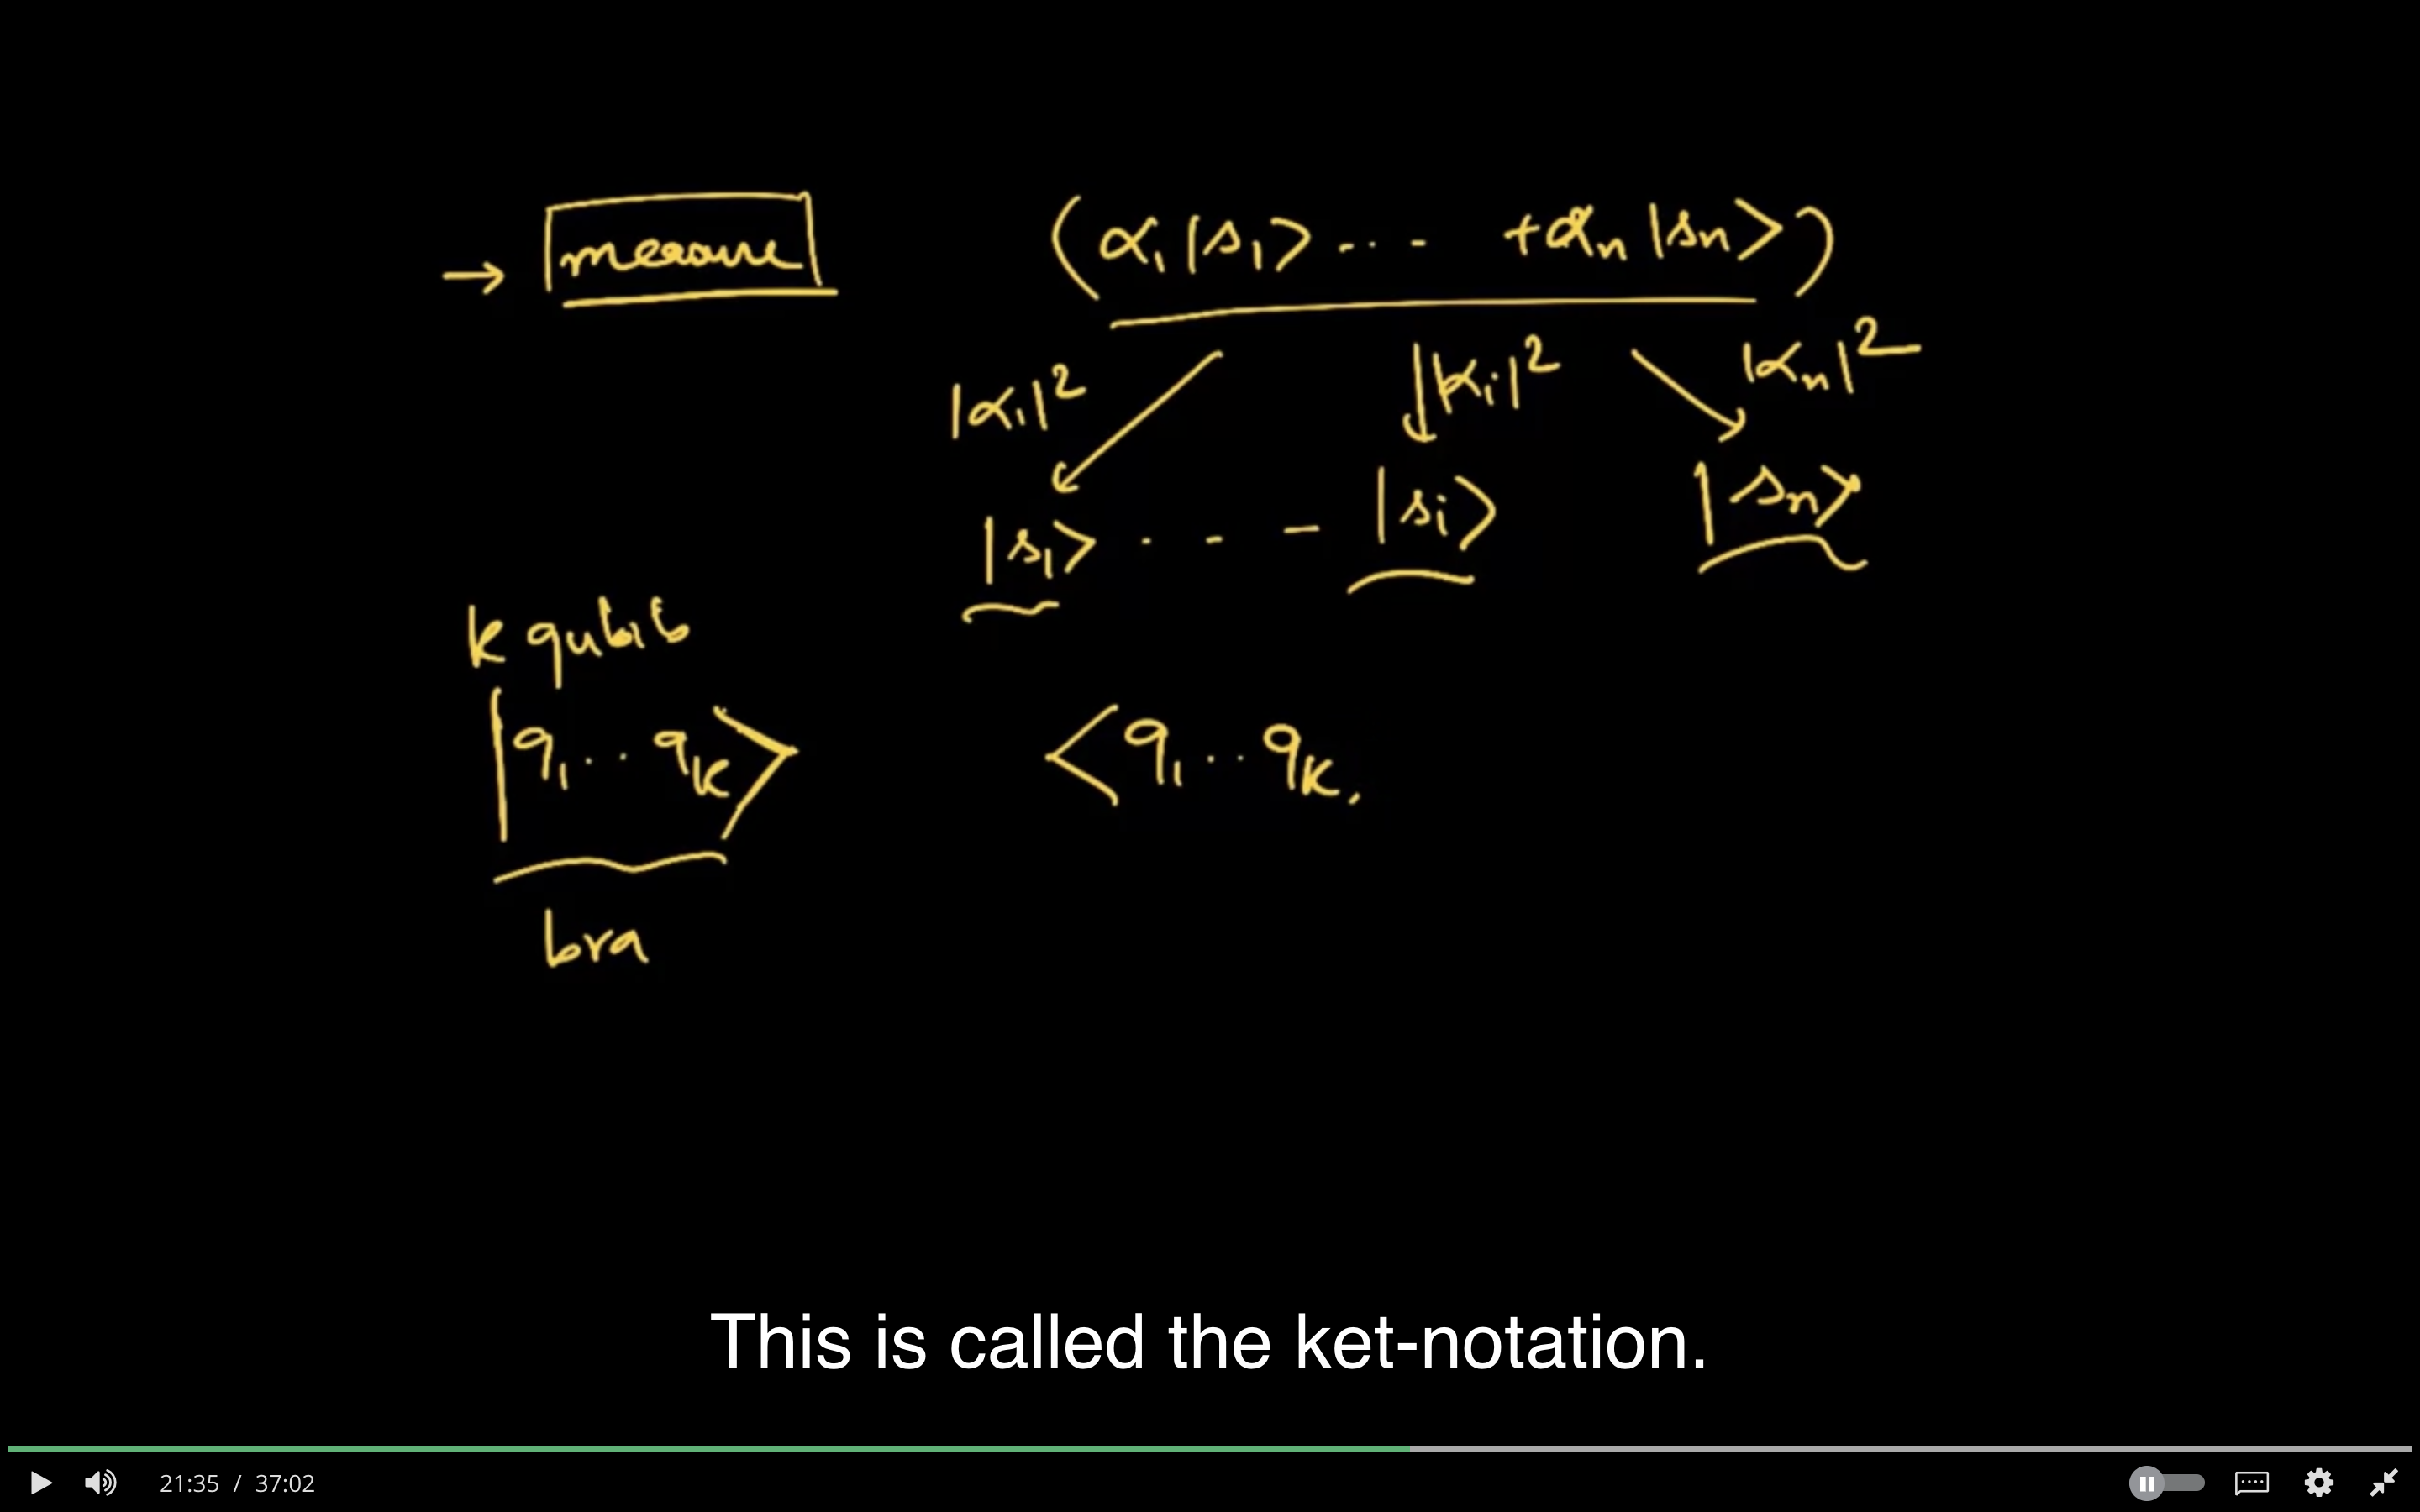 → measure (α₁|s₁> ... +αₙ|sₙ>)
|α₁|² |αᵢ|² |αₙ|²
|s₁> . - - |sᵢ> |sₙ>
k qubits
|q₁..qₖ> <q₁..qₖ,
bra
This is called the ket-notation.
21:35 / 37:02